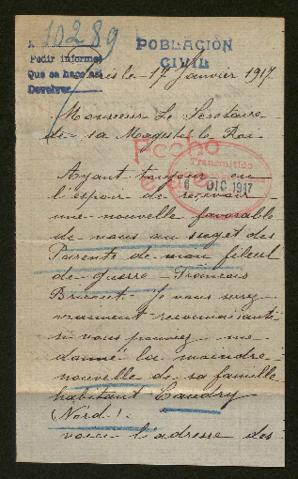 10289
POBLACIÓN
CIVIL
Pedir informes
Que se haga así
Devolver
Paris le 17 Janvier 1917.
Monsieur Le Secrétaire
de sa Majesté le Roi
Fecho
Transmitido
6 DIC 1917
Ayant toujours eu
l'espoir de recevoir
une nouvelle favorable
de vous au sujet des
Parents de mon filleul
de guerre - François
Je vous serez
vraiment reconnaissante
si vous pouvez me
donné la moindre
nouvelle de sa famille
habitant Caudry
Nord!
voici l'adresse des